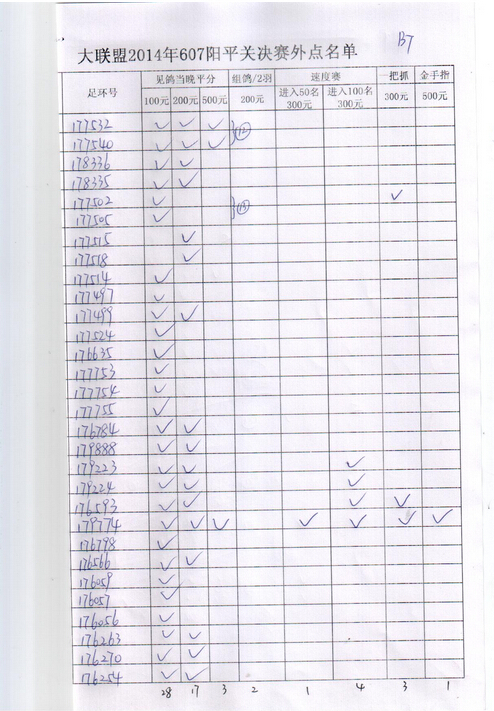 B7
大联盟2014年607阳平关决赛外点名单
足环号 见鸽当晚平分 组鸽/2羽 速度赛 一把抓 金手指
100元 200元 500元 200元 进入50名 300元 进入100名 300元 300元 500元
177532 ✓ ✓ ✓ ⑫
177540 ✓ ✓ ✓
178336 ✓ ✓
178335 ✓ ✓
177502 ✓ ⑬ ✓
177505 ✓
177515 ✓
177518 ✓
177514 ✓
177497 ✓
177499 ✓ ✓
177524 ✓
176635 ✓
177753 ✓
177754 ✓
177755 ✓
176784 ✓ ✓
179888 ✓ ✓
179223 ✓ ✓ ✓
179224 ✓ ✓ ✓
176593 ✓ ✓ ✓ ✓
179774 ✓ ✓ ✓ ✓ ✓ ✓ ✓
176798 ✓
176566 ✓ ✓
176059 ✓
176057 ✓
176056 ✓
176263 ✓ ✓
176270 ✓ ✓
176254 ✓ ✓
28 17 3 2 1 4 3 1